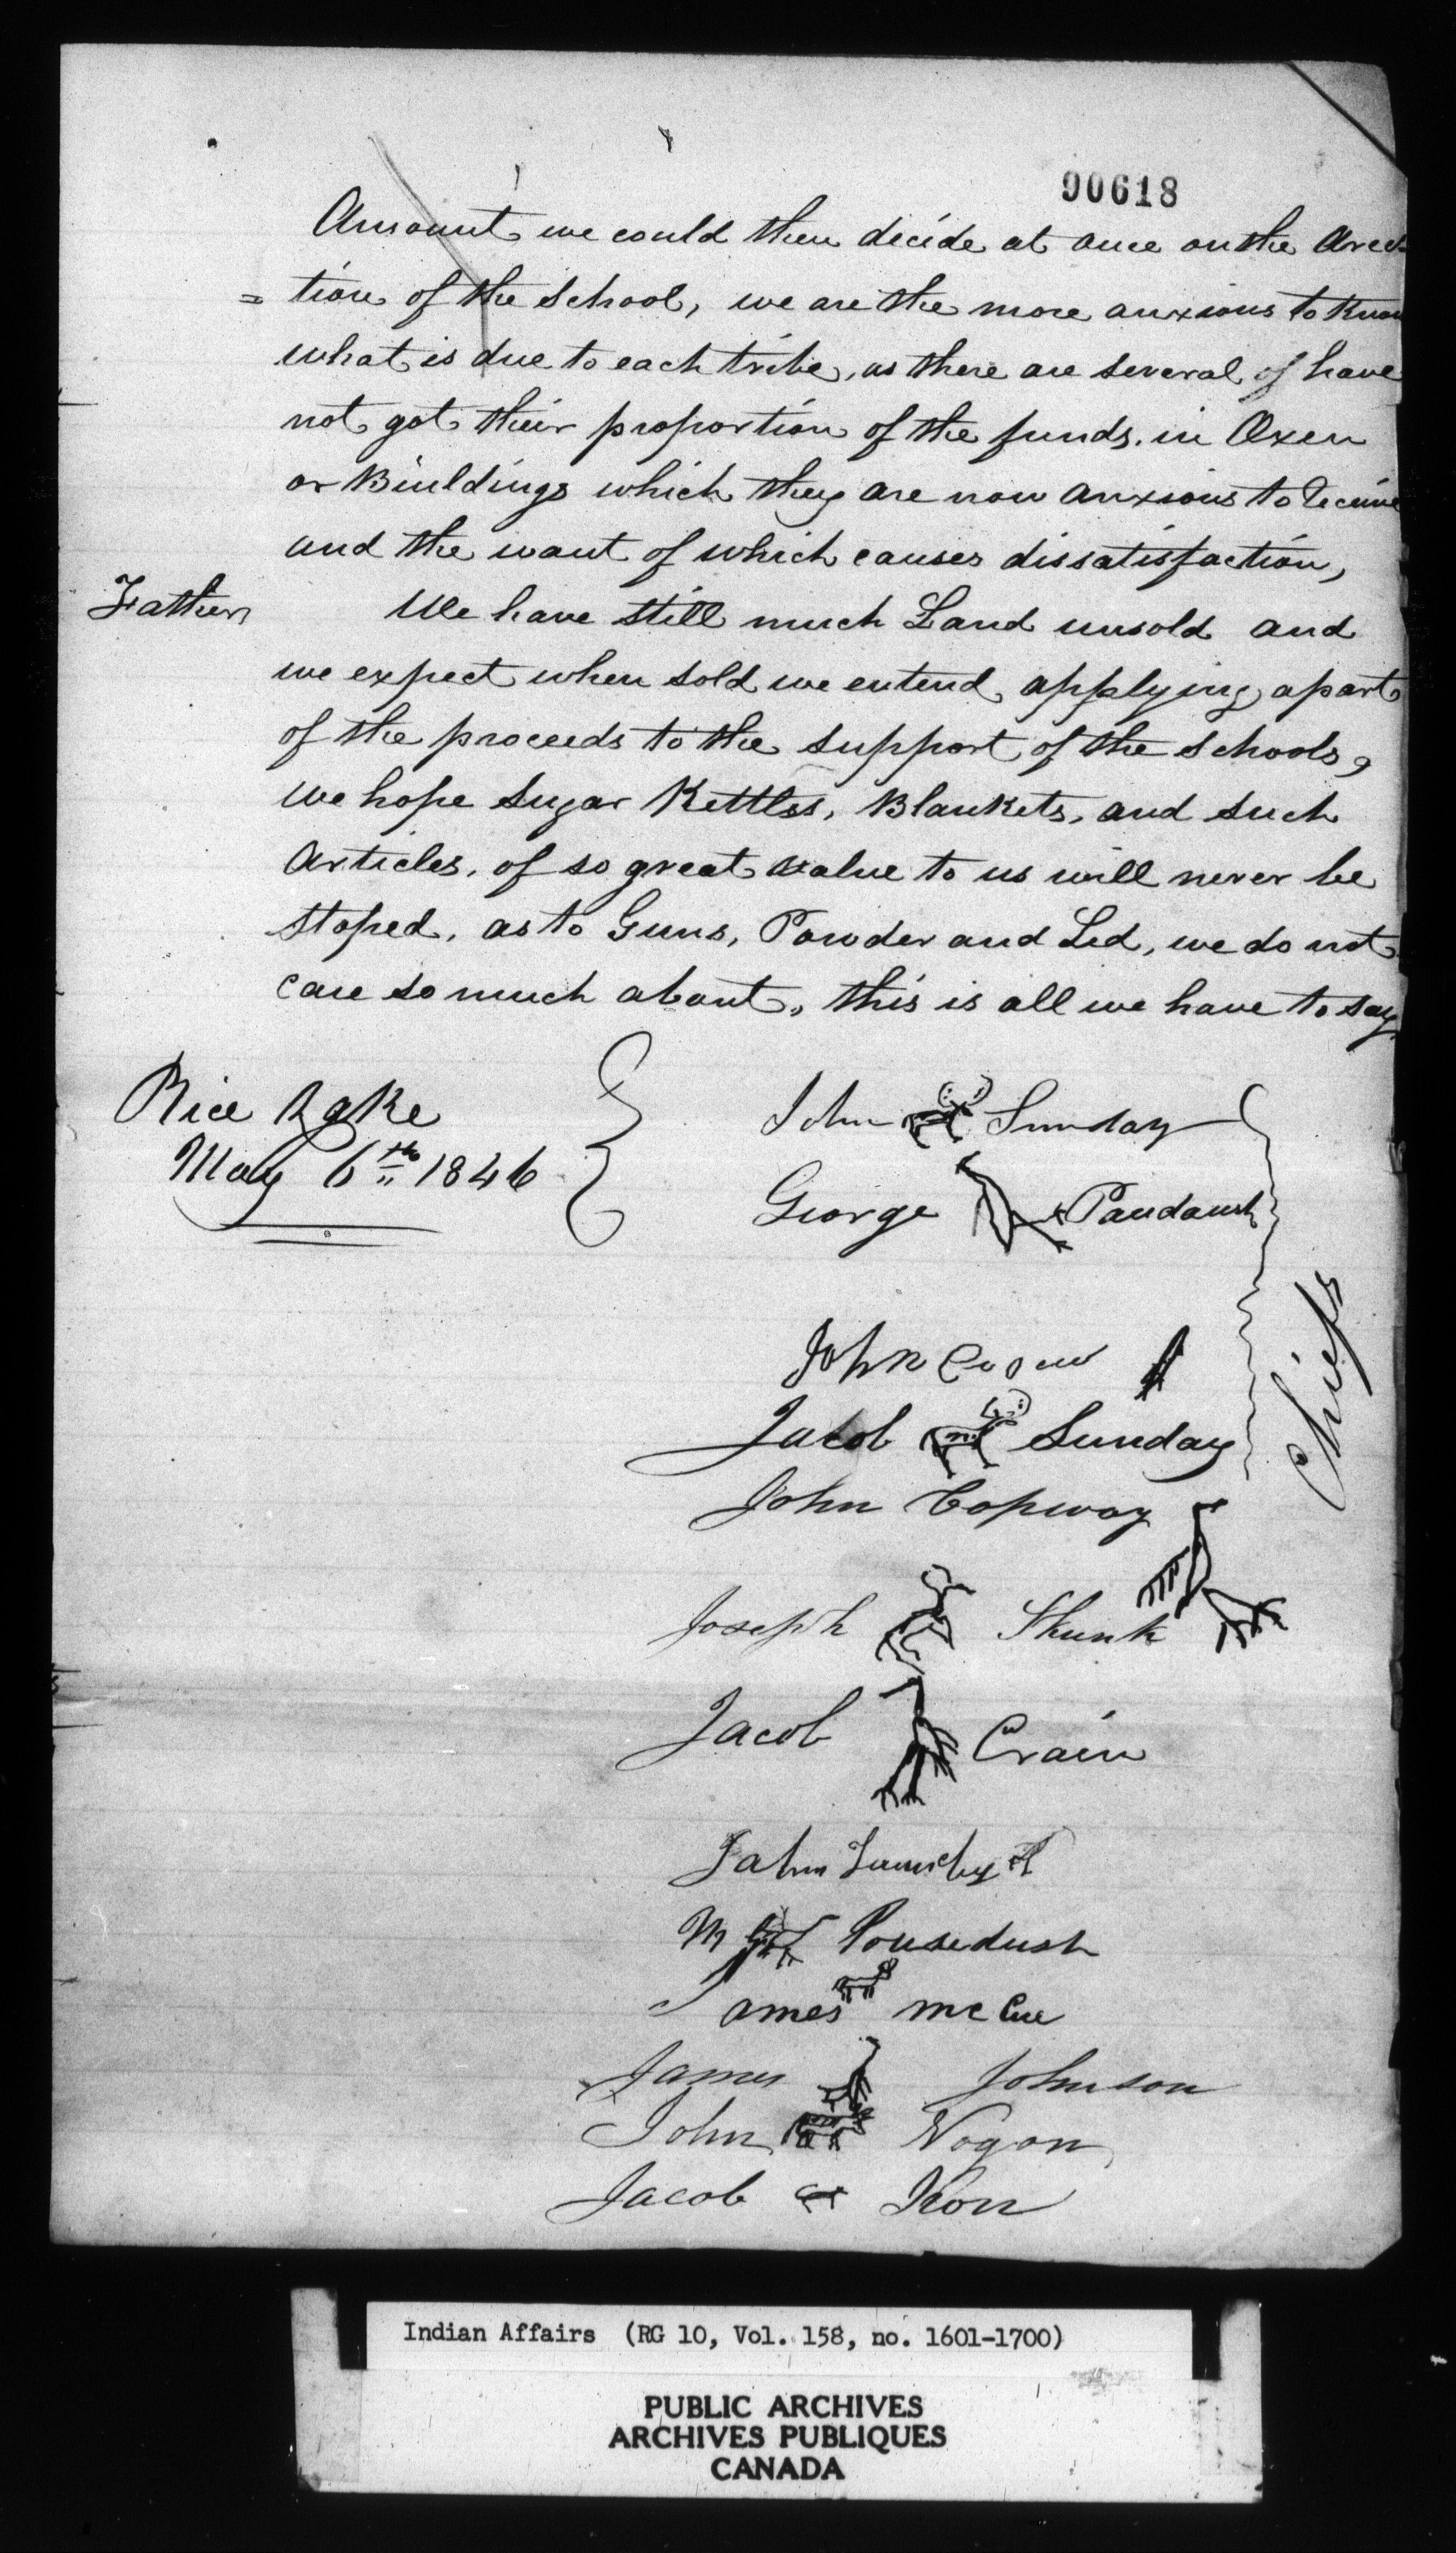 90618
Amount we could then decide at once on the Arec=
=tion of the School, we are the more anxious to Know
what is due to each tribe, as there are several of have
not got their proportion of the funds. in Oxen
or Buildings which they are now anxious to Receive
and the want of which causes dissatisfaction,
Father We have still much Land unsold and
we expect when sold we entend applying apart
of the proceeds to the support of the schools,
we hope Sugar Kettles, Blankets, and such
Articles, of so great value to us will never be
stoped, as to Guns, Powder and Led, we do not
care so much about, this is all we have to say
Rice Lake
May 6th 1846
John Sunday
George Paudaush
John
Jacob Sunday
John Copway
Joseph Skunk
Jacob Crain
John
M
James McCue
James Johnson
John Nogon
Jacob Iron
Chiefs
Indian Affairs (RG 10, Vol. 158, no. 1601-1700)
PUBLIC ARCHIVES
ARCHIVES PUBLIQUES
CANADA